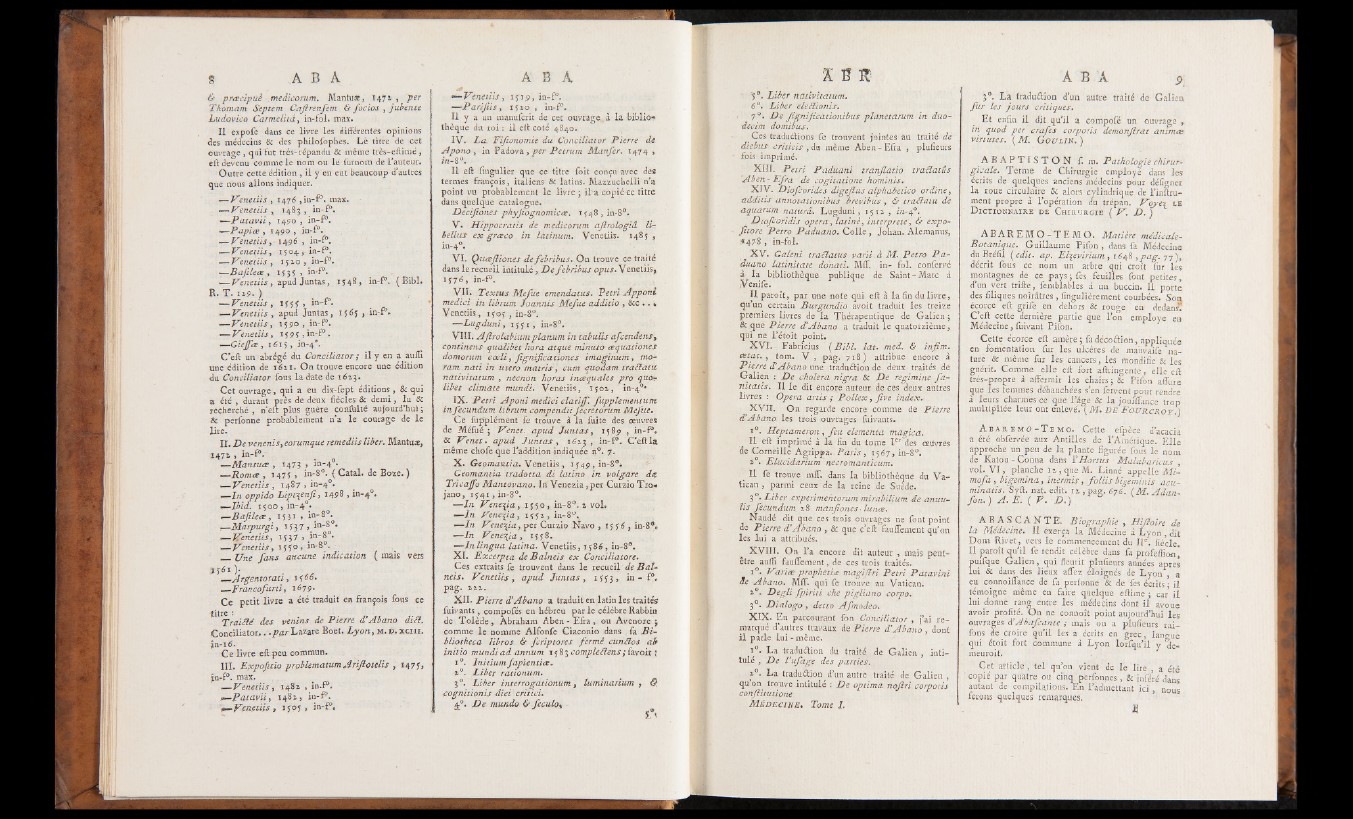 8 A B A
& præcipuè medicorum. Mantuæ, 1472, per
Thomam Septem Castrensem & socios, jubente
Ludovico Carmelita, in-fol. max.
Il expose dans ce livre les différentes opinions
des médecins & des philosophes. Le titre de cet
ouvrage, qui fut très-répandu & même très-estimé,
est devenu comme le nom ou le surnom de l'auteur.
Outre cette édition, il y en eut beaucoup d'autres
que nous allons indiquer.
—Venetiis, 1476, in-f°. max.
—Venetiis, 1483, in-f°.
—Patavii, 1490, in-f°.
—Papiæ, 1490, in-f°.
—Venetiis, 1496, in-f°.
—Venetiis, 1504, in-f°.
—Venetiis, 1520, in-f°.
—Basileæ, 1535, in-f°.
—Venetiis, apud Juntas, 1548, in-f°. (Bibl.
R. T. 129.)
—Venetiis, 1555, in-f°.
—Venetiis, apud Juntas, 1565, in-f°.
—Venetiis, 1590, in-f°.
—Venetiis, 1595, in-f°.
—Giessæ, 1615, in-4°.
C'est un abrégé du Conciliator; il y en a aussi
une édition de 1621. On trouve encore une édition
du Conciliator sous la date de 1623.
Cet ouvrage, qui a eu dix-sept éditions, & qui
a été, durant près de deux siècles & demi, lu &
recherché, n'est plus guère consulté aujourd'hui;
& personne probablement n'a le courage de le
lire.
II. De venenis, eorumque remediis liber. Mantuæ,
1472, in-f°.
—Mantuæ, 1473, in-4°.
—Romæ, 1475, in-8°. (Catal. de Boze.)
—Venetiis, 1487, in-4°.
—In oppido Lipzensi, 1498, in-4°.
—Ibid. 1500, in-4°.
—Basileæ, 1531, in-8°.
—Marpurgi, 1537, in-8°.
—Venetiis, 1537, in-8°.
—Venetiis, 1550, in-8°.
—Une sans aucune indication (mais vers
1561).
—Argentorati, 1566.
—Francofurti, 1679.
Ce petit livre a été traduit en françois sous ce
titre :
Traicté des venins de Pierre d'Abano dict
Conciliator...par Lazare Boet. Lyon, M.D.XCIII.
in-16.
Ce livre est peu commun.
III. Expositio problematum Aristotelis, 1475,
in-f°. max.
—Venetiis, 1482, in-f°.
—Patavii, 1482, in-f°.
—Venetiis, 1505, in-f°.
A B A
—Venetiis, 1519, in-f°.
—Parisiis, 1520, in-f°.
Il y a un manuscrit de cet ouvrage à la biblio-
thèque du roi : il est coté 4840.
IV. La Fisionomie du Conciliator Pierre de
Apono, in Padova, per Petrum Manfer. 1474,
in-8°.
Il est singulier que ce titre soit conçu avec des
termes françois, italiens & latins. Mazzuchelli n'a
point vu probablement le livre; il a copié ce titre
dans quelque catalogue.
Decisiones physiognomicæ. 1548, in-8°.
V. Hippocratis de medicorum astrologiâ li-
bellus ex græco in latinum. Venetiis. 1485,
in-4°.
VI. Quæstiones de febribus. On trouve ce traité
dans le recueil intitulé, De febribus opus. Venetiis,
1576, in-f°.
VII. Textus Mesue emendatus. Petri Apponi
medici in librum Joannis Mesue additio, &c...
Venetiis, 1505, in-8°.
—Lugduni, 1551, in-8°.
VIII. Astrolabium planum in tabulis ascendens,
continens qualibet hora atque minuto æquationes
domorum cœli, significationes imaginum, mo-
ram nati in utero matris, cum quodam tractatu
nativitatum, necnon horas inæquales pro quo-
libet climate mundi. Venetiis, 1502, in-4°.
IX. Petri Aponi medici clariss. supplementum
in secundum librum compendii secretorum Mesue.
Ce supplément se trouve à la suite des œuvres
de Mésué; Venet. apud Juntas, 1589, in-f°.
& Venet. apud Juntas, 1623, in-f°. C'est la
même chose que l'addition indiquée n°. 7.
X. Geomantia. Venetiis, 1549, in-8°.
Geomantia tradotta di latino in volgare da
Tricasso Mantovano. In Venezia, per Curzio Tro-
jano, 1541, in-8°.
—In Venezia, 1550, in-8°. 2 vol.
—In Venezia, 1552, in-8°.
—In Venezia, per Curzio Navo, 1556, in-8°.
—In Venezia, 1558.
—In lingua latina. Venetiis, 1586, in-8°.
XI. Excerpta de Balneis ex Conciliatore.
Ces extraits se trouvent dans le recueil de Bal-
neis. Venetiis, apud Juntas, 1553, in-f°.
pag. 222.
XII. Pierre d'Abano a traduit en latin les traités
suivants, composés en hébreu par le célèbre Rabbin
de Tolède, Abraham Aben-Esra, ou Avenore;
comme le nomme Alfonse Ciaconio dans sa Bi-
bliotheca libros & scriptores fermè cunctos ab
initio mundi ad annum 1583 complectens; savoir :
1°. Initium sapientiæ.
2°. Liber rationum.
3°. Liber interrogationum, luminarium, &
cognitionis diei critici.
4°. De mundo & seculo.
5°.
A B A
5°. Liber nativitatum.
6°. Liber electionis.
7°. De significationibus planetarum in duo-
decim domibus.
Ces traductions se trouvent jointes au traité de
diebus criticis, du même Aben-Esra, plusieurs
fois imprimé.
XIII. Petri Paduani translatio tractatûs
Aben-Esra de cogitatione hominis.
XIV. Dioscorides digestus alphabetico ordine,
additis annotationibus brevibus, & tractatu de
aquarum naturâ. Lugduni, 1512, in-4°.
Dioscoridis opera, latinè, interprete, & expo-
sitore Petro Paduano. Colle, Johan. Alemanus,
1478, in-fol.
XV. Galeni tractatus varii à M. Petro Pa-
duano latinitate donati. Mss. in-fol. conservé
à la bibliothèque publique de Saint-Marc à
Venise.
Il paroît, par une note qui est à la fin du livre,
qu'un certain Burgundio avoit traduit les treize
premiers livres de la Thérapeutique de Galien;
& que Pierre d'Abano a traduit le quatorzième,
qui ne l'étoit point.
XVI. Fabricius (Bibl. lat. med. & infim.
ætat., tom. V, pag. 718) attribue encore à
Pierre d'Abano une traduction de deux traités de
Galien : De cholera nigra & De regimine sa-
nitatis. Il le dit encore auteur de ces deux autres
livres : Opera artis; Pollex, sive index.
XVII. On regarde encore comme de Pierre
d'Abano les trois ouvrages suivants.
1°. Heptameron, seu elementa magica.
Il est imprimé à la fin du tome Ier des œuvres
de Corneille Agrippa. Paris, 1567, in-8°.
2°. Elucidarium necromanticum.
Il se trouve mss. dans la bibliothèque du Va-
tican, parmi ceux de la reine de Suède.
3°. Liber experimentorum mirabilium de annu-
lis secundum 28 mansiones lunæ.
Naudé dit que ces trois ouvrages ne sont point
de Pierre d'Abano, & que c'est faussement qu'on
les lui a attribués.
XVIII. On l'a encore dit auteur, mais peut-
être aussi faussement, de ces trois traités.
1°. Variæ prophetiæ magistri Petri Patavini
de Abano. Mss. qui se trouve au Vatican.
2°. Degli spiriti che pigliano corpo.
3°. Dialogo, detto Asmodeo.
XIX. En parcourant son Conciliator, j'ai re-
marqué d'autres travaux de Pierre d'Abano, dont
il parle lui-même.
1°. La traduction du traité de Galien, inti-
tulé, De l'usage des parties.
2°. La traduction d'un autre traité de Galien,
qu'on trouve intitulé : De optima nostri corporis
constitutione
MÉDECINE. Tome I.
A B A 9
3°. La traduction d'un autre traité de Galien
sur les jours critiques.
Et enfin il dit qu'il a composé un ouvrage,
in quod per crasis corporis demonstrat animæ
virtutes. (M. GOULIN.)
ABAPTISTON s. m. Pathologie chirur-
gicale. Terme de Chirurgie employé dans les
écrits de quelques anciens médecins pour désigner
la roue circulaire & alors cylindrique de l'instru-
ment propre à l'opération du trépan. Voyez LE
DICTIONNAIRE DE CHIRURGIE (V. D.)
ABAREMO-TEMO. Matière médicale-
Botanique. Guillaume Pison, dans sa Médecine
du Brésil (edit. ap. Elzevirium, 1648, pag. 77),
décrit sous ce nom un arbre qui croît sur les
montagnes de ce pays; ses feuilles sont petites,
d'un vert triste, semblables à un buccin. Il porte
des siliques noirâtres, singulièrement courbées. Son
écorce est grise en dehors & rouge en dedans.
C'est cette dernière partie que l'on employe en
Médecine, suivant Pison.
Cette écorce est amère; sa décoction, appliquée
en fomentation sur les ulcères de mauvaise na-
ture & même sur les cancers, les mondifie & les
guérit. Comme elle est fort astringente, elle est
très-propre à affermir les chairs; & Pison assure
que les femmes débauchées s'en servent pour rendre
à leurs charmes ce que l'âge & la jouissance trop
multipliée leur ont enlevé. (M. DE FOURCROY.)
ABAREMO-TEMO. Cette espèce d'acacia
a été observée aux Antilles de l'Amérique. Elle
approche un peu de la plante figurée sous le nom
de Katou-Conna dans l'Hortus Malabaricus,
vol. VI, planche 12, que M. Linné appelle Mi-
mosa, bigemina, inermis, foliis bigeminis acu-
minatis. Syst. nat. edit. 12, pag. 676. (M. Adan-
son.) A. E. (V. D.)
ABASCANTE. Biographie, Histoire de
la Médecine. Il exerça la Médecine à Lyon, dit
Dom Rivet, vers le commencement du IIe. siècle.
Il paroît qu'il se rendit célèbre dans sa profession,
puisque Galien, qui fleurit plusieurs années après
lui & dans des lieux assez éloignés de Lyon, a
eu connoissance de sa personne & de ses écrits; il
témoigne même en faire quelque estime; car il
lui donne rang entre les médecins dont il avoue
avoir profité. On ne connoît point aujourd'hui les
ouvrages d'Abascante; mais on a plusieurs rai-
sons de croire qu'il les a écrits en grec, langue
qui étoit fort commune à Lyon lorsqu'il y de-
meuroit.
Cet article, tel qu'on vient de le lire, a été
copié par quatre ou cinq personnes, & inséré dans
autant de compilations. En l'admettant ici, nous
ferons quelques remarques.
B